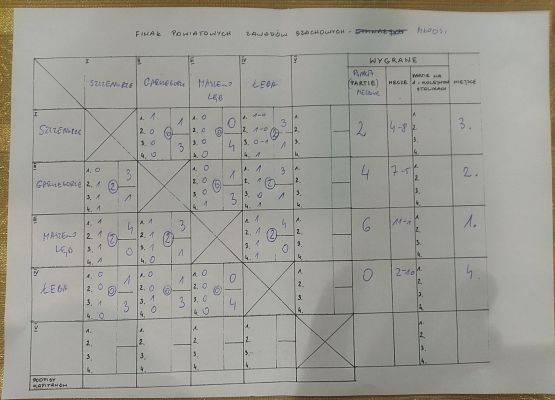 FINAŁ POWIATOWYCH ZAWODÓW SZACHOWYCH - MŁODZ.
I. II. III. IV V WYGRANE
SZCZENURZE GARNEGORZE MASZEWO LĘB. ŁEBA PUNKTY (PARTIE) MECZOWE MECZE PARTIE NA 1-KOLEJNYM STOLIKACH MIEJSCE
I. SZCZENURZE 1. 1 2. 0 3. 0 4. 0 0 1 3 1. 0 2. 0 3. 0 4. 0 0 0 4 1. 1-0 2. 1-0 3. 0-1 4. 1 2 3 1 1. 2. 3. 4. 2 4-8 1. 2. 3. 4. 3.
II GARNEGORZE 1. 0 2. 1 3. 1 4. 1 2 3 1 1. 0 2. 0 3. 0 4. 1 0 1 3 1. 1 2. 1 3. 0 4. 1 2 3 1 1. 2. 3. 4. 4 7-5 1. 2. 3. 4. 2.
III MASZEWO LĘB 1. 1 2. 1 3. 1 4. 1 2 4 0 1. 1 2. 1 3. 1 4. 0 2 3 1 1. 1 2. 1 3. 1 4. 1 2 4 0 1. 2. 3. 4. 6 11-1 1. 2. 3. 4. 1.
IV ŁEBA 1. 0 2. 0 3. 1 4. 0 0 1 3 1. 0 2. 0 3. 1 4. 0 0 1 3 1. 0 2. 0 3. 0 4. 0 0 0 4 1. 2. 3. 4. 0 2-10 1. 2. 3. 4. 4.
V 1. 2. 3. 4. 1. 2. 3. 4. 1. 2. 3. 4. 1. 2. 3. 4. 1. 2. 3. 4.
PODPISY KAPITANÓW